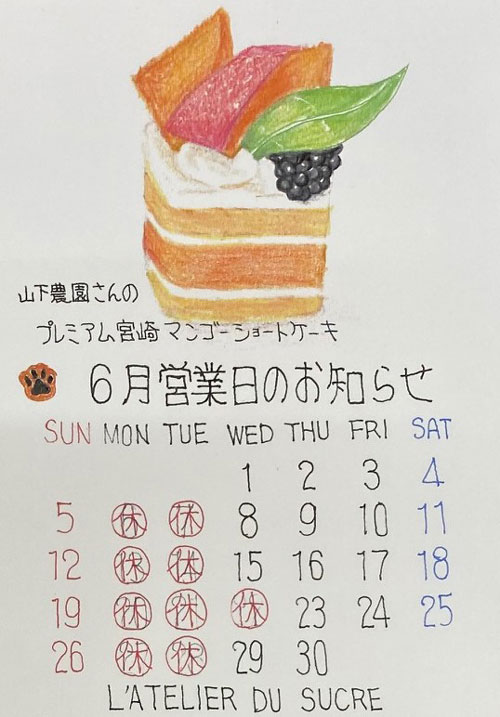 山下農園さんの
プレミアム宮崎マンゴーショートケーキ
6月営業日のお知らせ
SUN MON TUE WED THU FRI SAT
1 2 3 4
5 休 休 8 9 10 11
12 休 休 15 16 17 18
19 休 休 休 23 24 25
26 休 休 29 30
L'ATELIER DU SUCRE